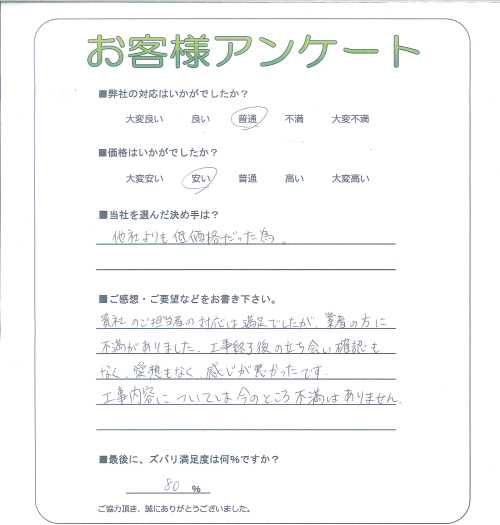 お客様アンケート
■弊社の対応はいかがでしたか？
大変良い 良い 普通 不満 大変不満
■価格はいかがでしたか？
大変安い 安い 普通 高い 大変高い
■当社を選んだ決め手は？
他社よりも低価格だった為。
■ご感想・ご要望などをお書き下さい。
貴社のご担当者の対応は満足でしたが、業者の方に
不満がありました。工事終了後の立ち会い確認も
なく、愛想もなく、感じが悪かったです。
工事内容については今のところ不満はありません。
■最後に、ズバリ満足度は何%ですか？
80 %
ご協力頂き、誠にありがとうございました。